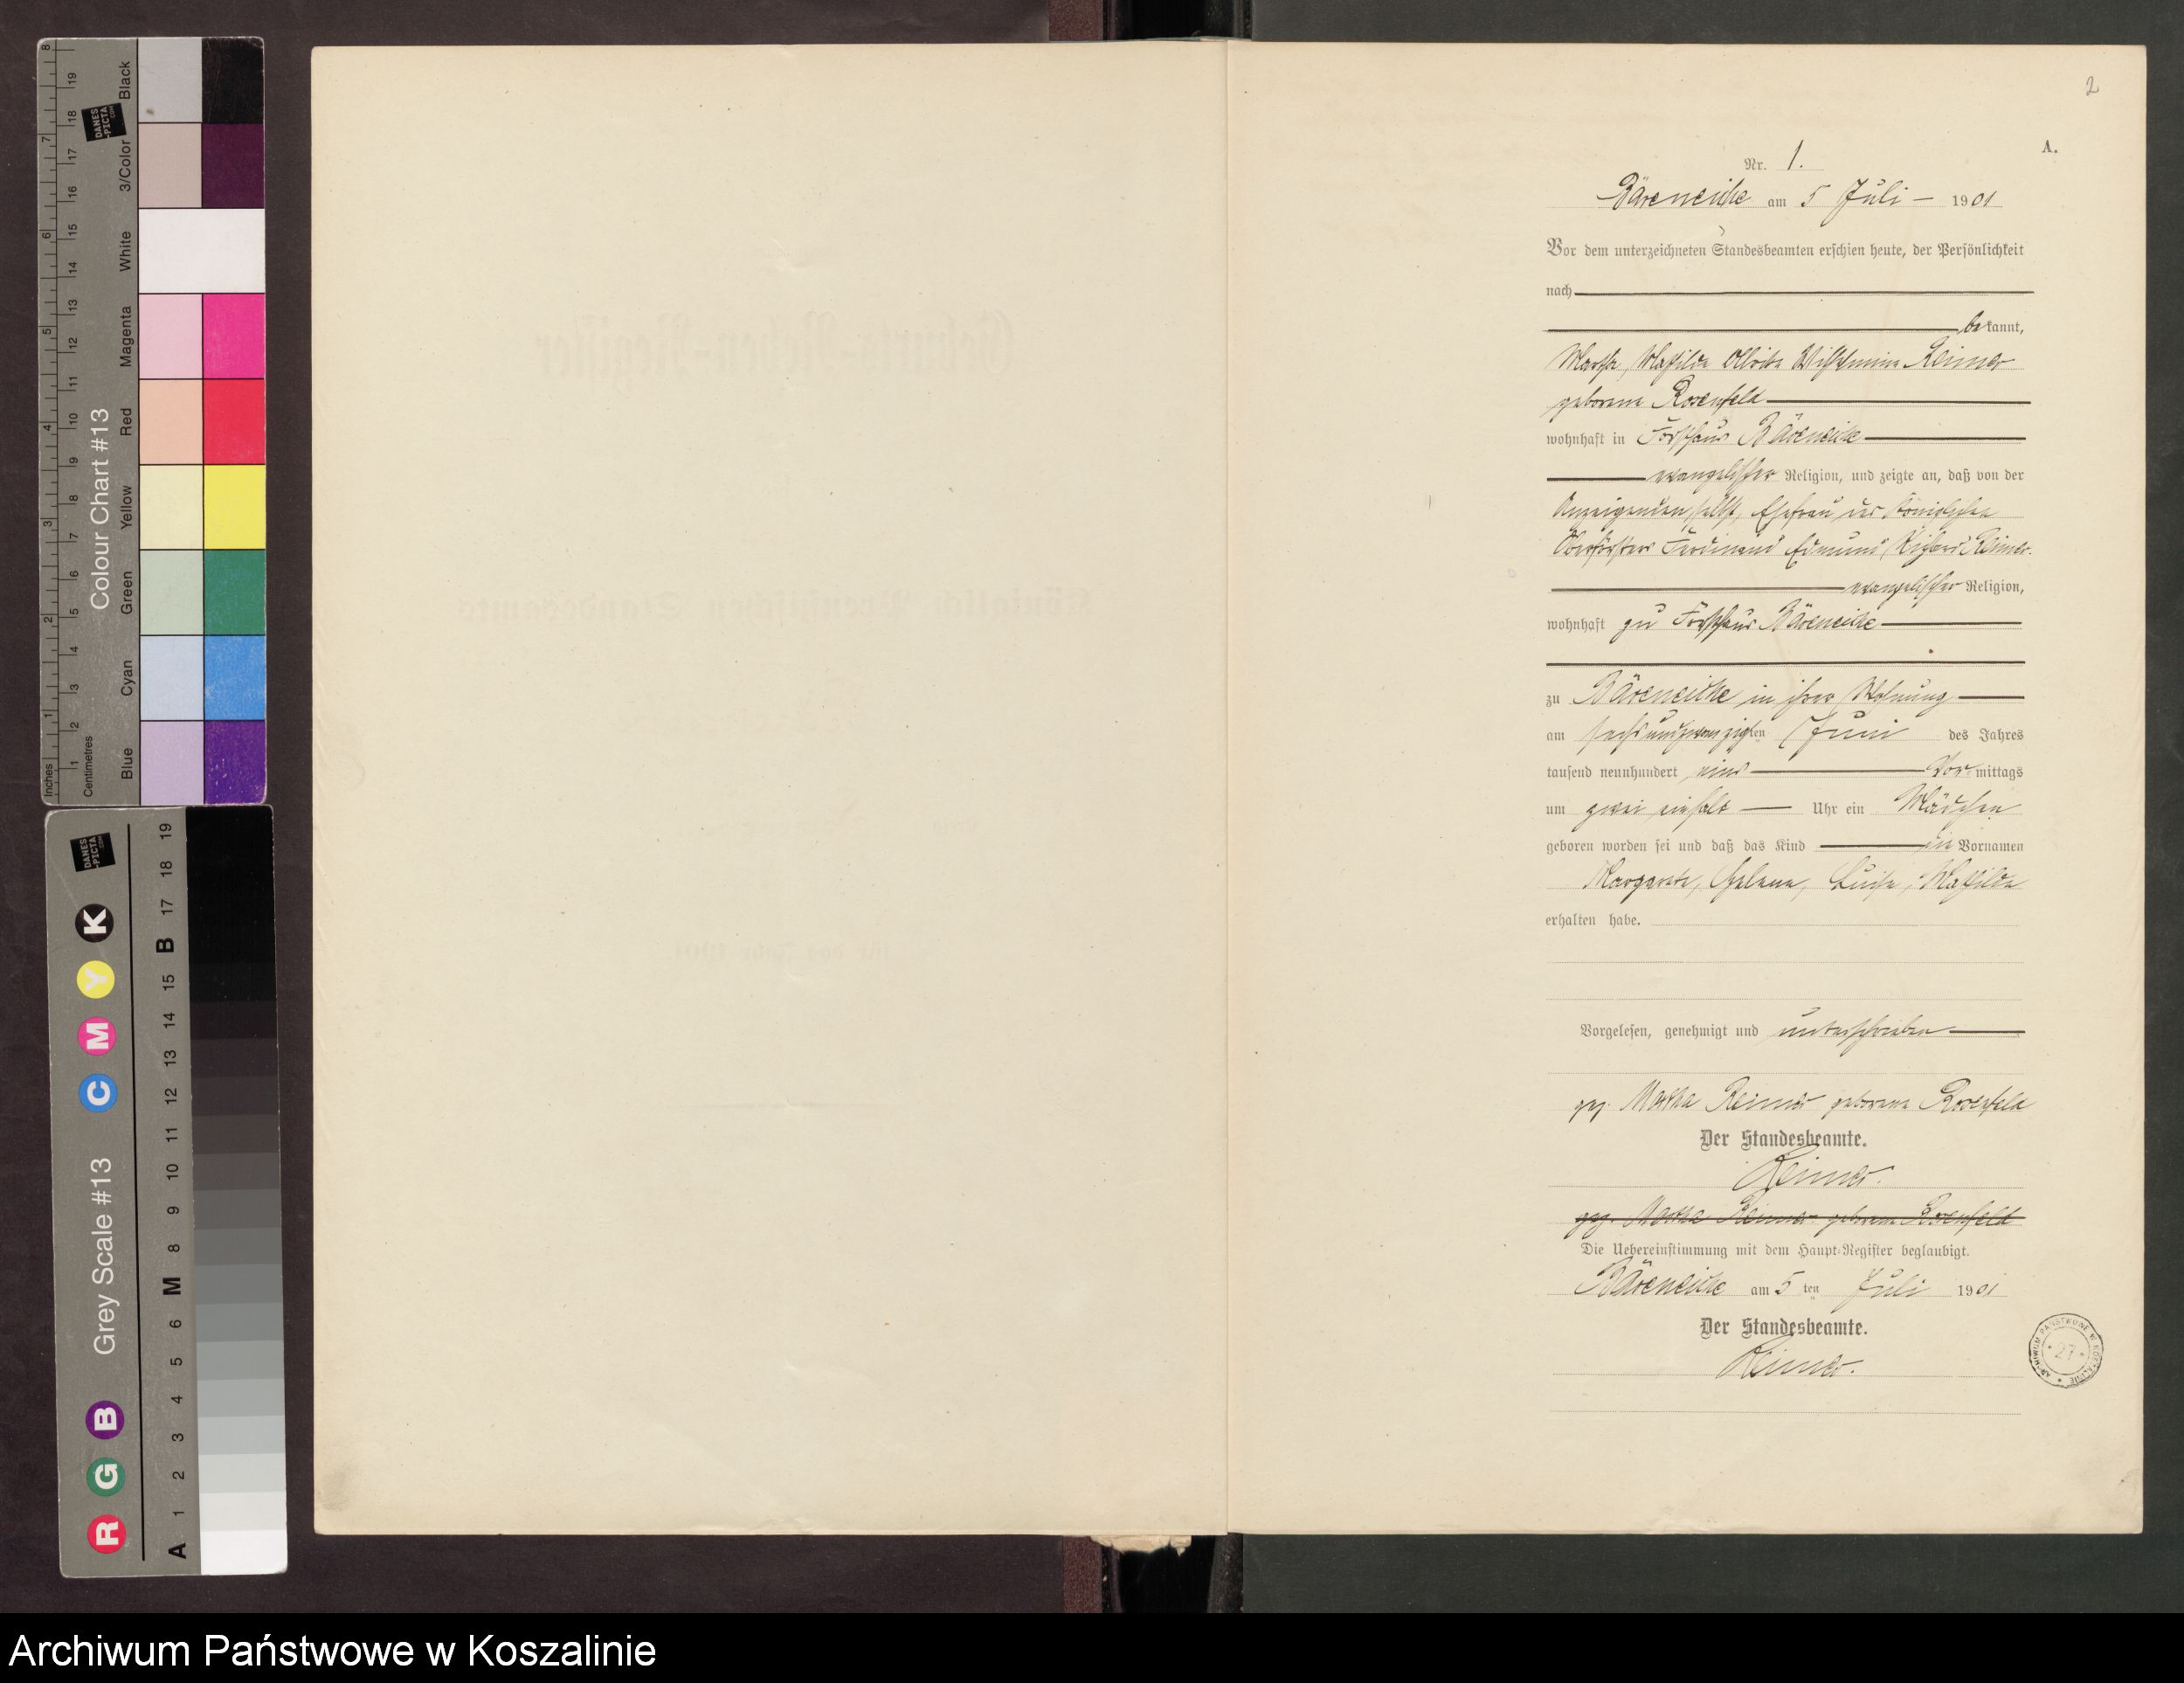 2
A.
Nr. 1.
Bäreneiche am 5 Juli 1901
Vor dem unterzeichneten Standesbeamten erschien heute, der Persönlichkeit
nach
bekannt,
Martha, Mathilde Wilhelmine Reimer
geborene Rosenfeld
wohnhaft in Forsthaus Bäreneiche
evangelischer Religion, und zeigte an, daß von der
Anzeigenden selbst, Ehefrau des Königlichen
Oberförsters Ferdinand Edmund Richard Reimer
evangelischer Religion,
wohnhaft zu Forsthaus Bäreneiche
zu Bäreneiche in ihrer Wohnung
am sechsundzwanzigten Juni des Jahres
tausend neunhundert eins Vormittags
um zwei einhalb Uhr ein Mädchen
geboren worden sei und daß das Kind die Vornamen
Margarete, Helene, Luise, Mathilde
erhalten habe.
Vorgelesen, genehmigt und unterschrieben
gez. Martha Reimer geborene Rosenfeld
Der Standesbeamte.
Reimer.
gez. Martha Reimer geborene Rosenfeld
Die Uebereinstimmung mit dem Haupt-Register beglaubigt.
Bäreneiche am 5 ten Juli 1901
Der Standesbeamte.
Reimer.
ARCHIWUM PAŃSTWOWE W KOSZALINIE
27
Colour Chart #13
Blue Cyan Green Yellow Red Magenta White 3/Color Black
Inches
Centimetres
DANES-PICTA.COM
Grey Scale #13
R G B C M Y K
A 1 2 3 4 5 6 M 8 9 10 11 12 13 14 15 B 17 18 19
Archiwum Państwowe w Koszalinie